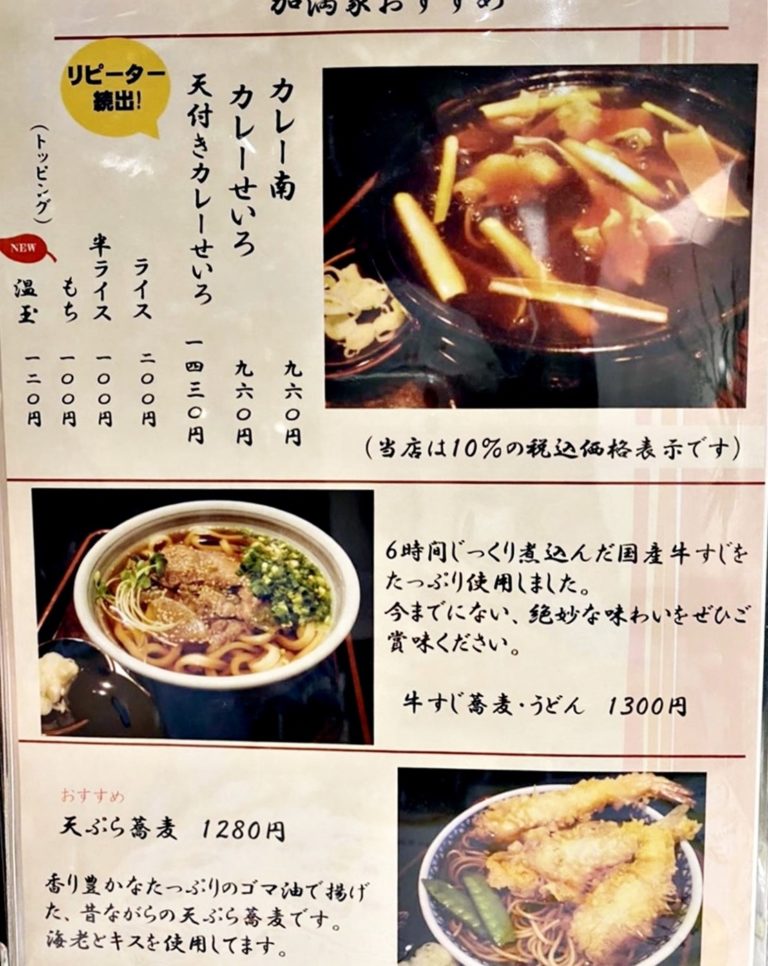 加満家おすすめ
リピーター
続出!
カレー南 九六〇円
カレーせいろ 九六〇円
天付きカレーせいろ 一四三〇円
(トッピング)
ライス 二〇〇円
半ライス 一〇〇円
もち 一〇〇円
NEW
温玉 一二〇円
(当店は10%の税込価格表示です)
6時間じっくり煮込んだ国産牛すじを
たっぷり使用しました。
今までにない、絶妙な味わいをぜひご
賞味ください。
牛すじ蕎麦・うどん 1300円
おすすめ
天ぷら蕎麦 1280円
香り豊かなたっぷりのゴマ油で揚げ
た、昔ながらの天ぷら蕎麦です。
海老とキスを使用してます。